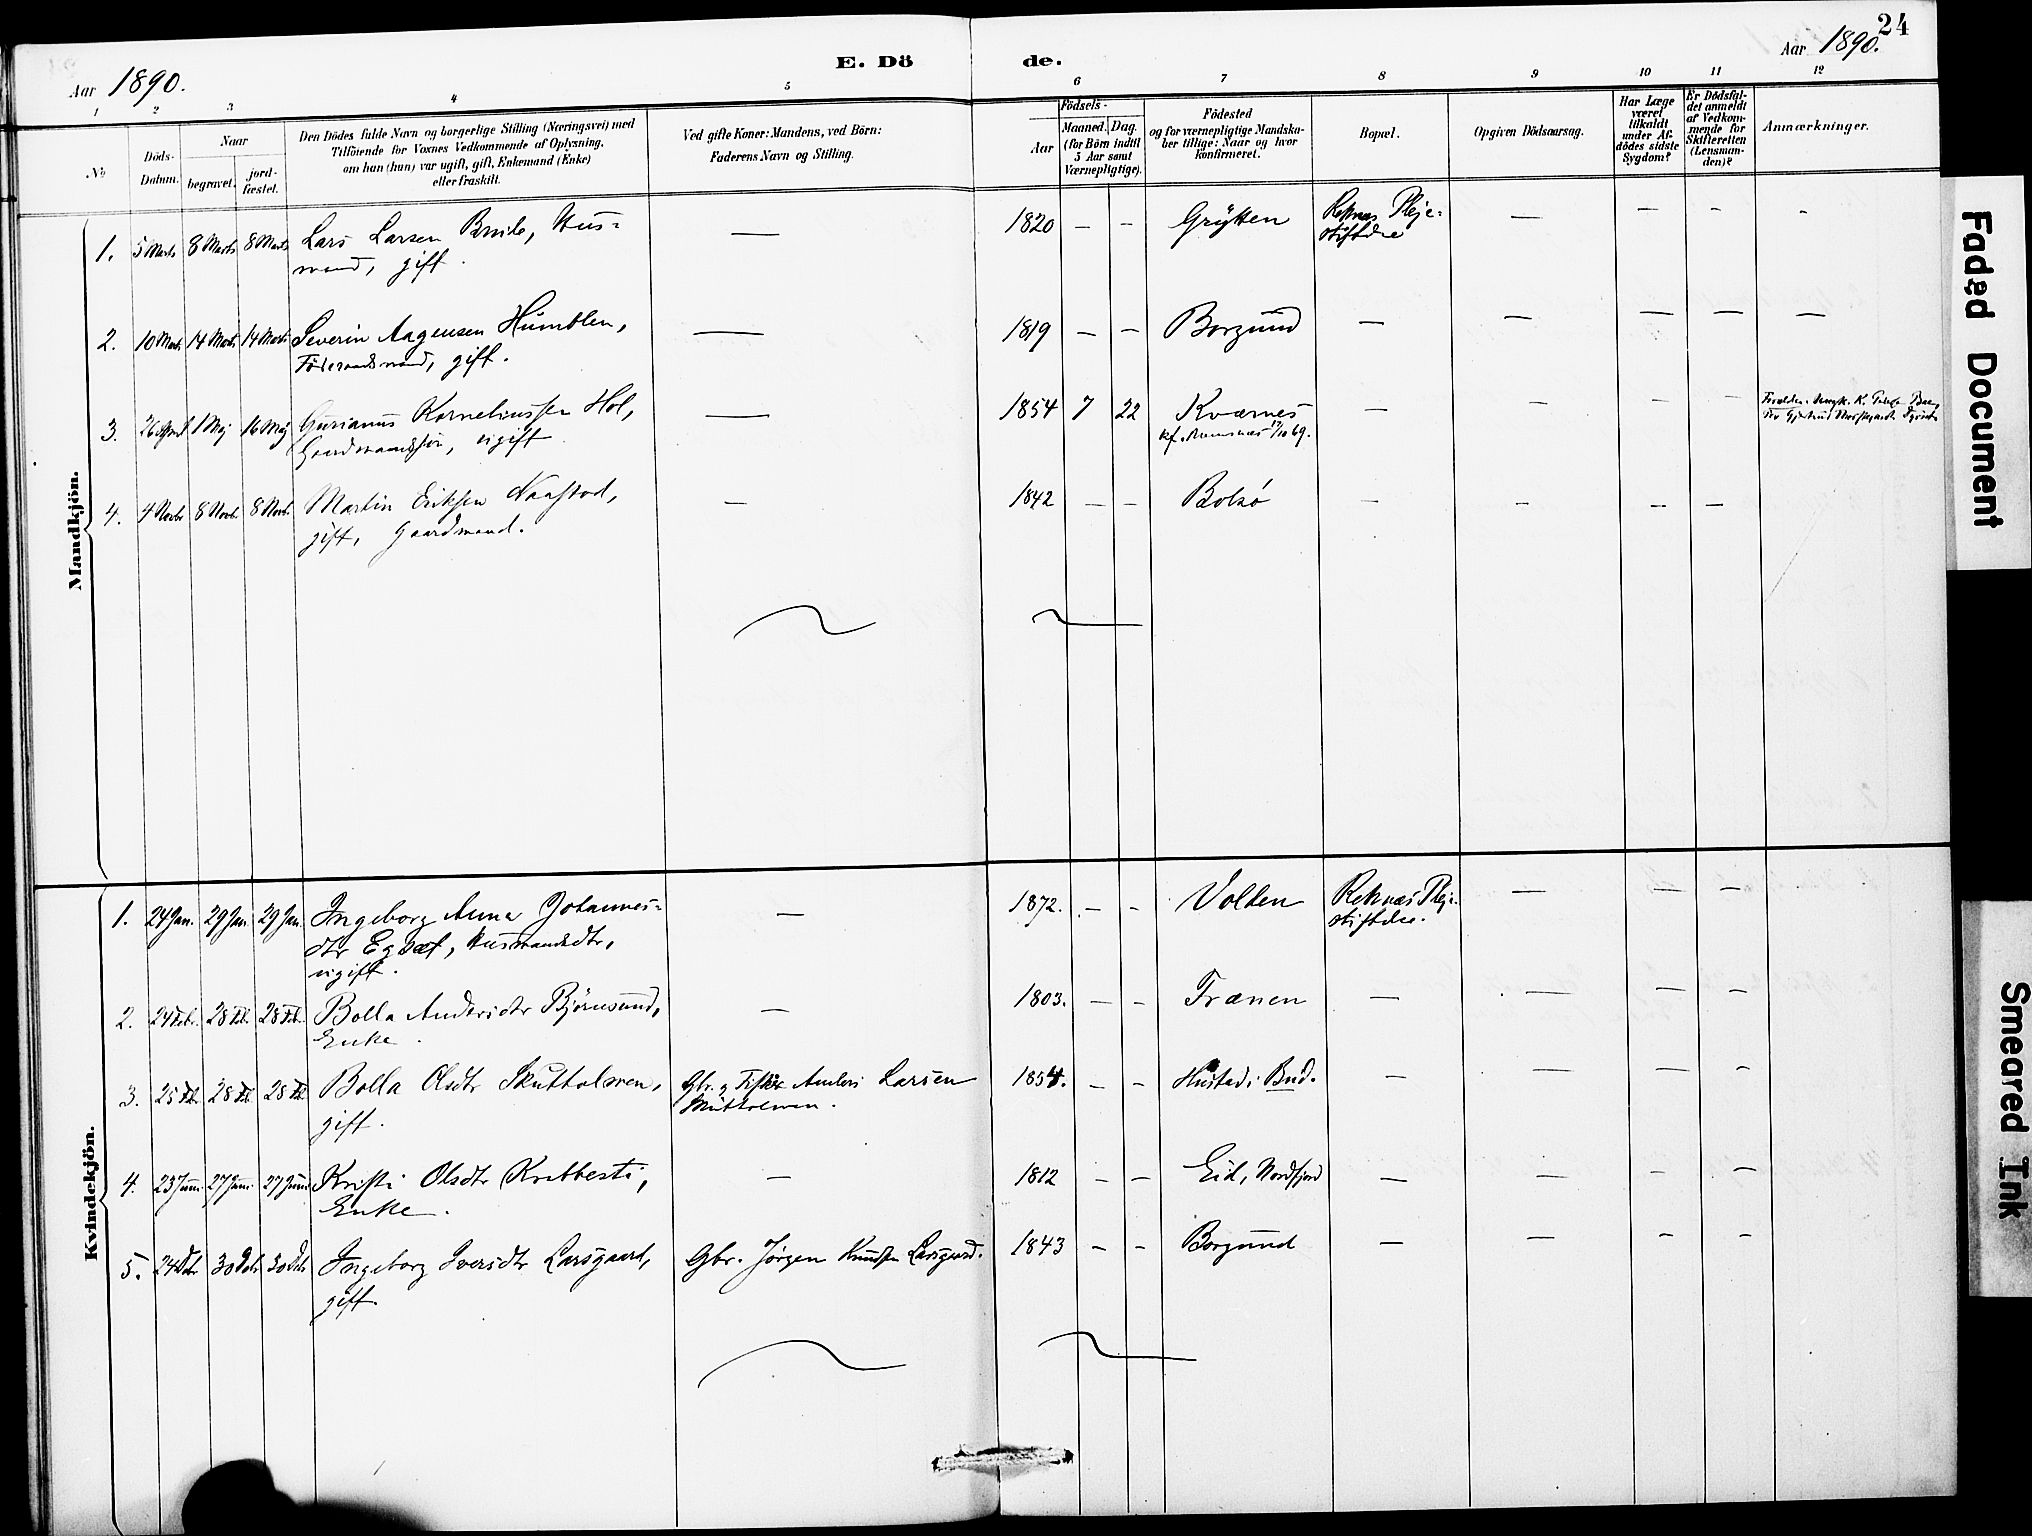 24
Aar 1890.
E. Dö
de.
Aar 1890.
1 2 3 4 5 6 7 8 9 10 11 12
No
Döds-
Datum.
Naar
begravet.
jord-
fæstet.
Den Dödes fulde Navn og borgerlige Stilling (Næringsvei) med
Tilföiende for Voxnes Vedkommende af Oplysning,
om han (hun) var ugift, gift, Enkemand (Enke)
eller fraskilt.
Ved gifte Koner: Mandens, ved Börn:
Faderens Navn og Stilling.
Födsels-
Aar
Maaned. Dag.
(for Börn indtil
5 Aar samt
Værnepligtige).
Födested
og for værnepligtige Mandska-
ber tillige: Naar og hvor
konfirmeret.
Bopæl.
Opgiven Dödsaarsag.
Har Læge
været
tilkaldt
under Af-
dödes sidste
Sygdom?
Er Dödsfal-
det anmeldt
af Vedkom-
mende for
Skifteretten
(Lensman-
den)?
Anmærkninger.
Mandkjön.
1. 5 Marts 8 Marts 8 Marts Lars Larsen, Hus- — 1820 — — Grytten Reknæs Pleje- — — — -
mand, gift. stiftelse
2. 10 Marts 14 Marts 14 Marts Severin Aagensen Humblen, — 1819 — — Borgund — — — — —
Föderaadsmand, gift.
3. 26 April 1 Maj 16 Maj Gurianus Korneliussen Hol, — 1854 7 22 Kværnes — — — —
Gaardmandssøn, ugift kf. 69.
4. 4 Novbr 8 Novbr. 8 Novbr. Martin Eriksen, — 1842 — — Bolsø — — — —
gift, Gaardmand.
Kvindekjön.
1. 24 Jan. 29 Jan. 29 Jan. Ingeborg Anna Johannes- — 1872. — — Volden Reknæs Pleje- — — —
dtr Egset, Husmandsdtr, stiftelse.
ugift.
2. 24 Febr. 28 Feb. 28 Feb. Bolla Andersdtr Björnsund, — 1803. — — Frænen — — — —
Enke.
3. 25 Feb. 28 Feb 28 Feb Bolla Olsdtr Skutholmen, Gbr. g Fisker Anders Larsen 1854. — — Hustad i Bud. — — — —
gift. Skutholmen.
4. 23 Juni 27 Juni 27 Juni Kristi Olsdtr Krabbesti, — 1812 — — Eid, Nordfjord — — — —
Enke.
5. 24 Dbr 30 Dbr 30 Dbr Ingeborg Iversdtr Larsgaard, Gbr. Jørgen Knudsen Larsgaard. 1843 — — Borgund — — — —
gift.
Faded Document
Smeared Ink